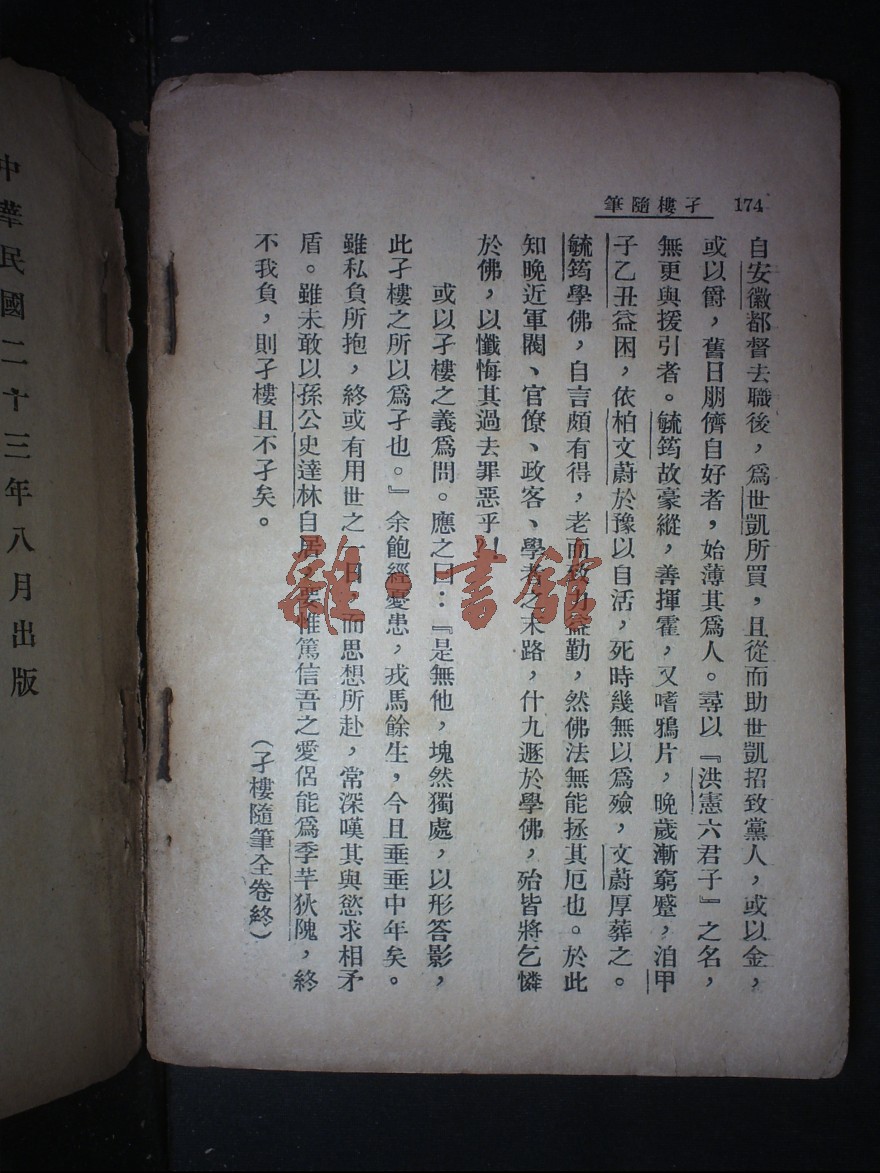 174
孑樓隨筆
自安徽都督去職後，爲世凱所買，且從而助世凱招致黨人，或以金，
或以爵，舊日朋儕自好者，始薄其爲人。尋以『洪憲六君子』之名，
無更與援引者。毓筠故豪縱，善揮霍，又嗜鴉片，晚歲漸窮蹙，洎甲
子乙丑益困，依柏文蔚於豫以自活，死時幾無以爲殮，文蔚厚葬之。
毓筠學佛，自言頗有得，老而致力益勤，然佛法無能拯其厄也。於此
知晚近軍閥、官僚、政客、學者之末路，什九遯於學佛，殆皆將乞憐
於佛，以懺悔其過去罪惡乎！
或以孑樓之義爲問。應之曰：『是無他，塊然獨處，以形答影，
此孑樓之所以爲孑也。』余飽經憂患，戎馬餘生，今且垂垂中年矣。
雖私負所抱，終或有用世之一日，而思想所赴，常深嘆其與慾求相矛
盾。雖未敢以孫公史達林自居，要惟篤信吾之愛侶能爲季芊狄隗，終
不我負，則孑樓且不孑矣。
（孑樓隨筆全卷終）
中華民國二十三年八月出版
雜·書館